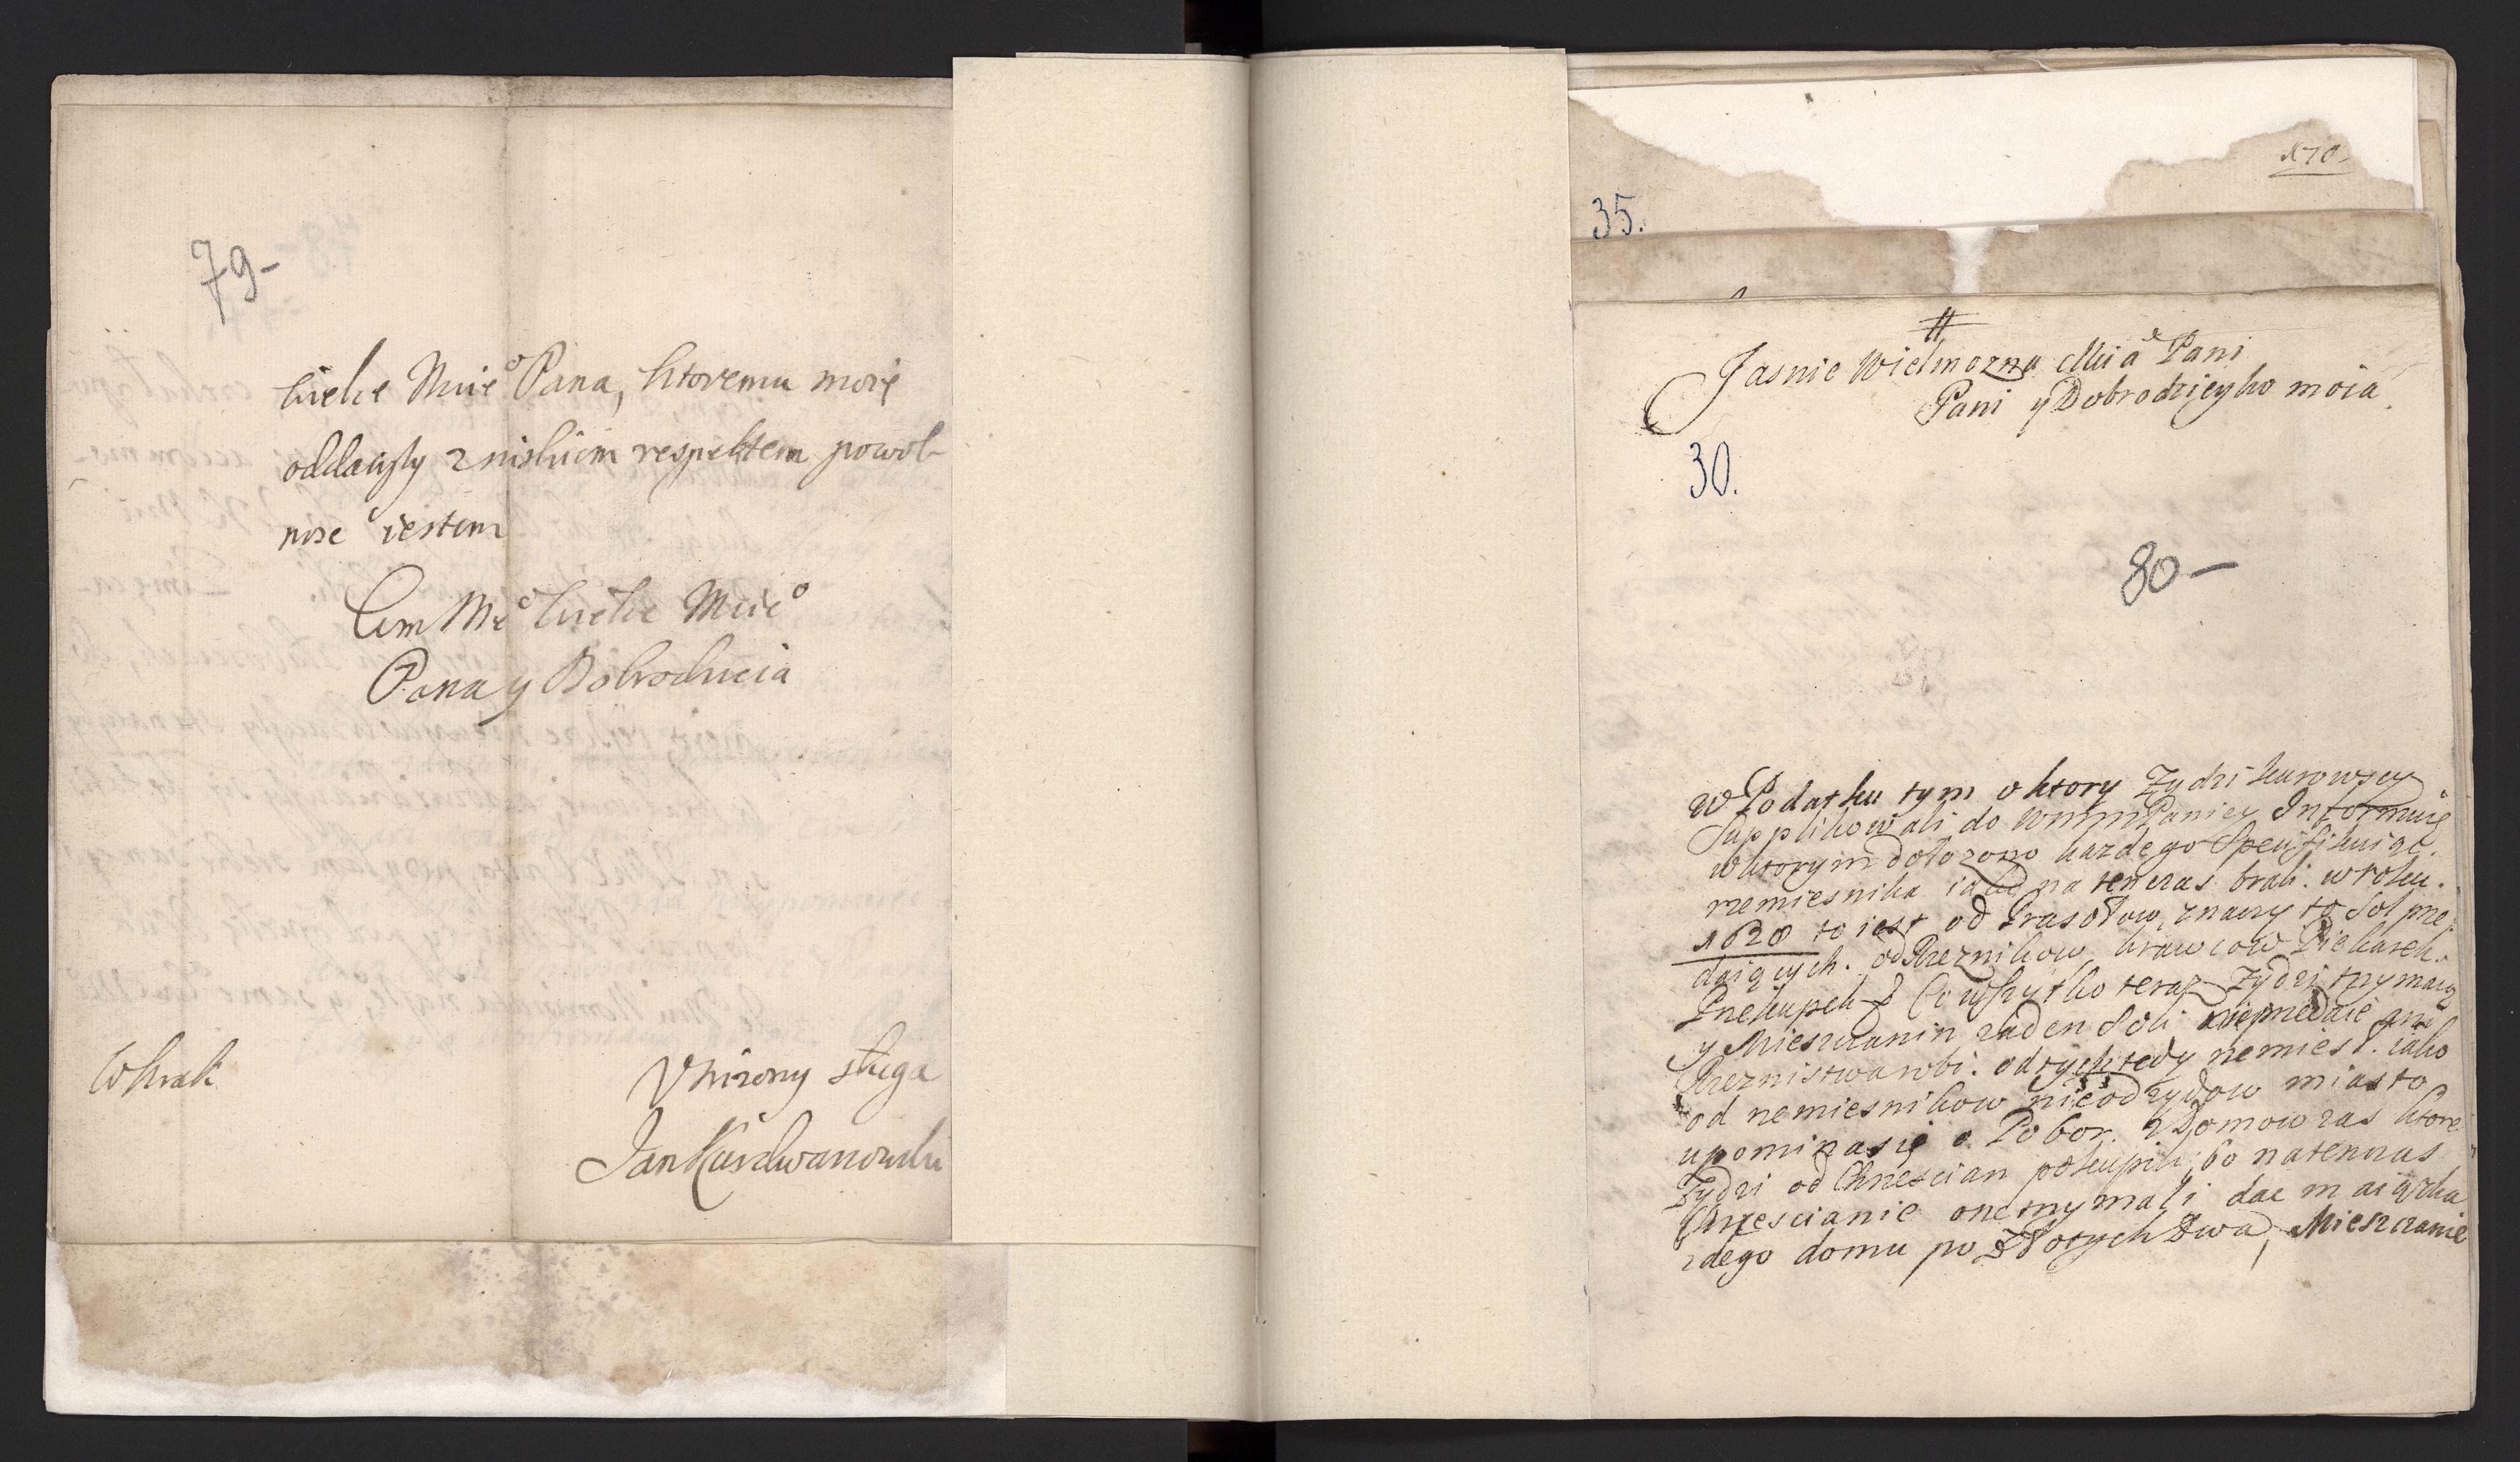 79-
Wielce Mnie° Pana, ktoremu moię
oddawszy z niskiem respektem powol-
nosc iestem
Wm Me° Wielce Mnie°
Pana y Dobrodzieia
W Krak
Vniżony sługa
Jan
170-
35.
#
Jasnie Wielmozna Mia Pani
Pani y Dobrodzieyko moia
30.
80-
W Podatku tym o ktory Zydzi kurowscy
Supplikowali do WmmPaniey Informuię
wktorym dołozono kazdego Specifikuiąc
rzemiesnika iako na tenczas brali. w roku.
1628 to iest od Prasołow, znaczy to Sol prze-
daiących. od Rzeznikow, krawcow Piekarek.
Przekupek Co wszytko teraz Zydzi trzymaią
y Mieszczanin zaden Soli nieprzedaie ani
Rzeznistwa robi. od tych tedy rzemiesł. iako
od rzemiesnikow nie od zydow miasto
upomina się o Pobor. z Domow zas ktore
Zydzi od Chrzescian pokupili, bo natenczas
Chrzescianie one trzymali dac maią zka
zdego domu po złotych Dwa, Mieszczanie